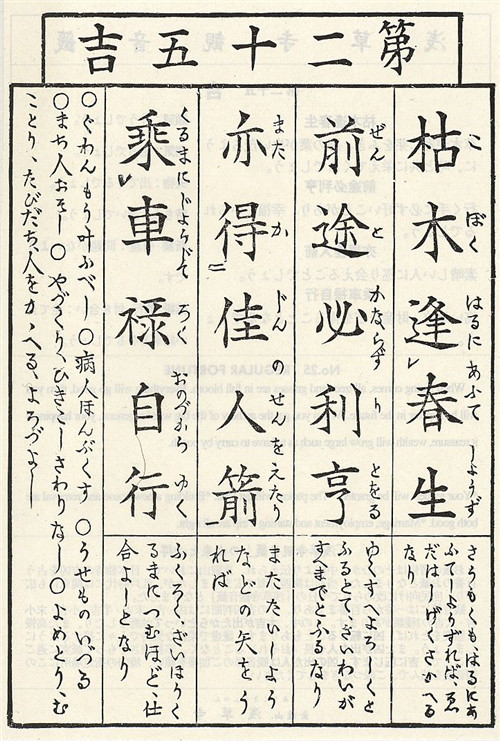 第二十五吉
こ ぼく はるに あふて しようず
枯木逢春生
はるにあ
ふてしようずれば、ゑ
だはしげりさかへる
なり
ぜん と かならず り とをる
前途必利亨
ゆくすへよろしくと
さいわいが
すへまでとふるなり
また か じんの せんをえたり
亦得佳人箭
などの矢をう
れば
くるまにじようじて ろく おのづから ゆく
乗車禄自行
ふくろくざいほうく
るまにつむほど、仕
合よしとなり
○ぐわんもうすふべし ○病人ほんぷくす ○うせもいづる
○まち人おそし ○やづくり、ひきこしさわりなし ○よめとり、む
ことり、たびだち、人をかゝへる、よろづよし